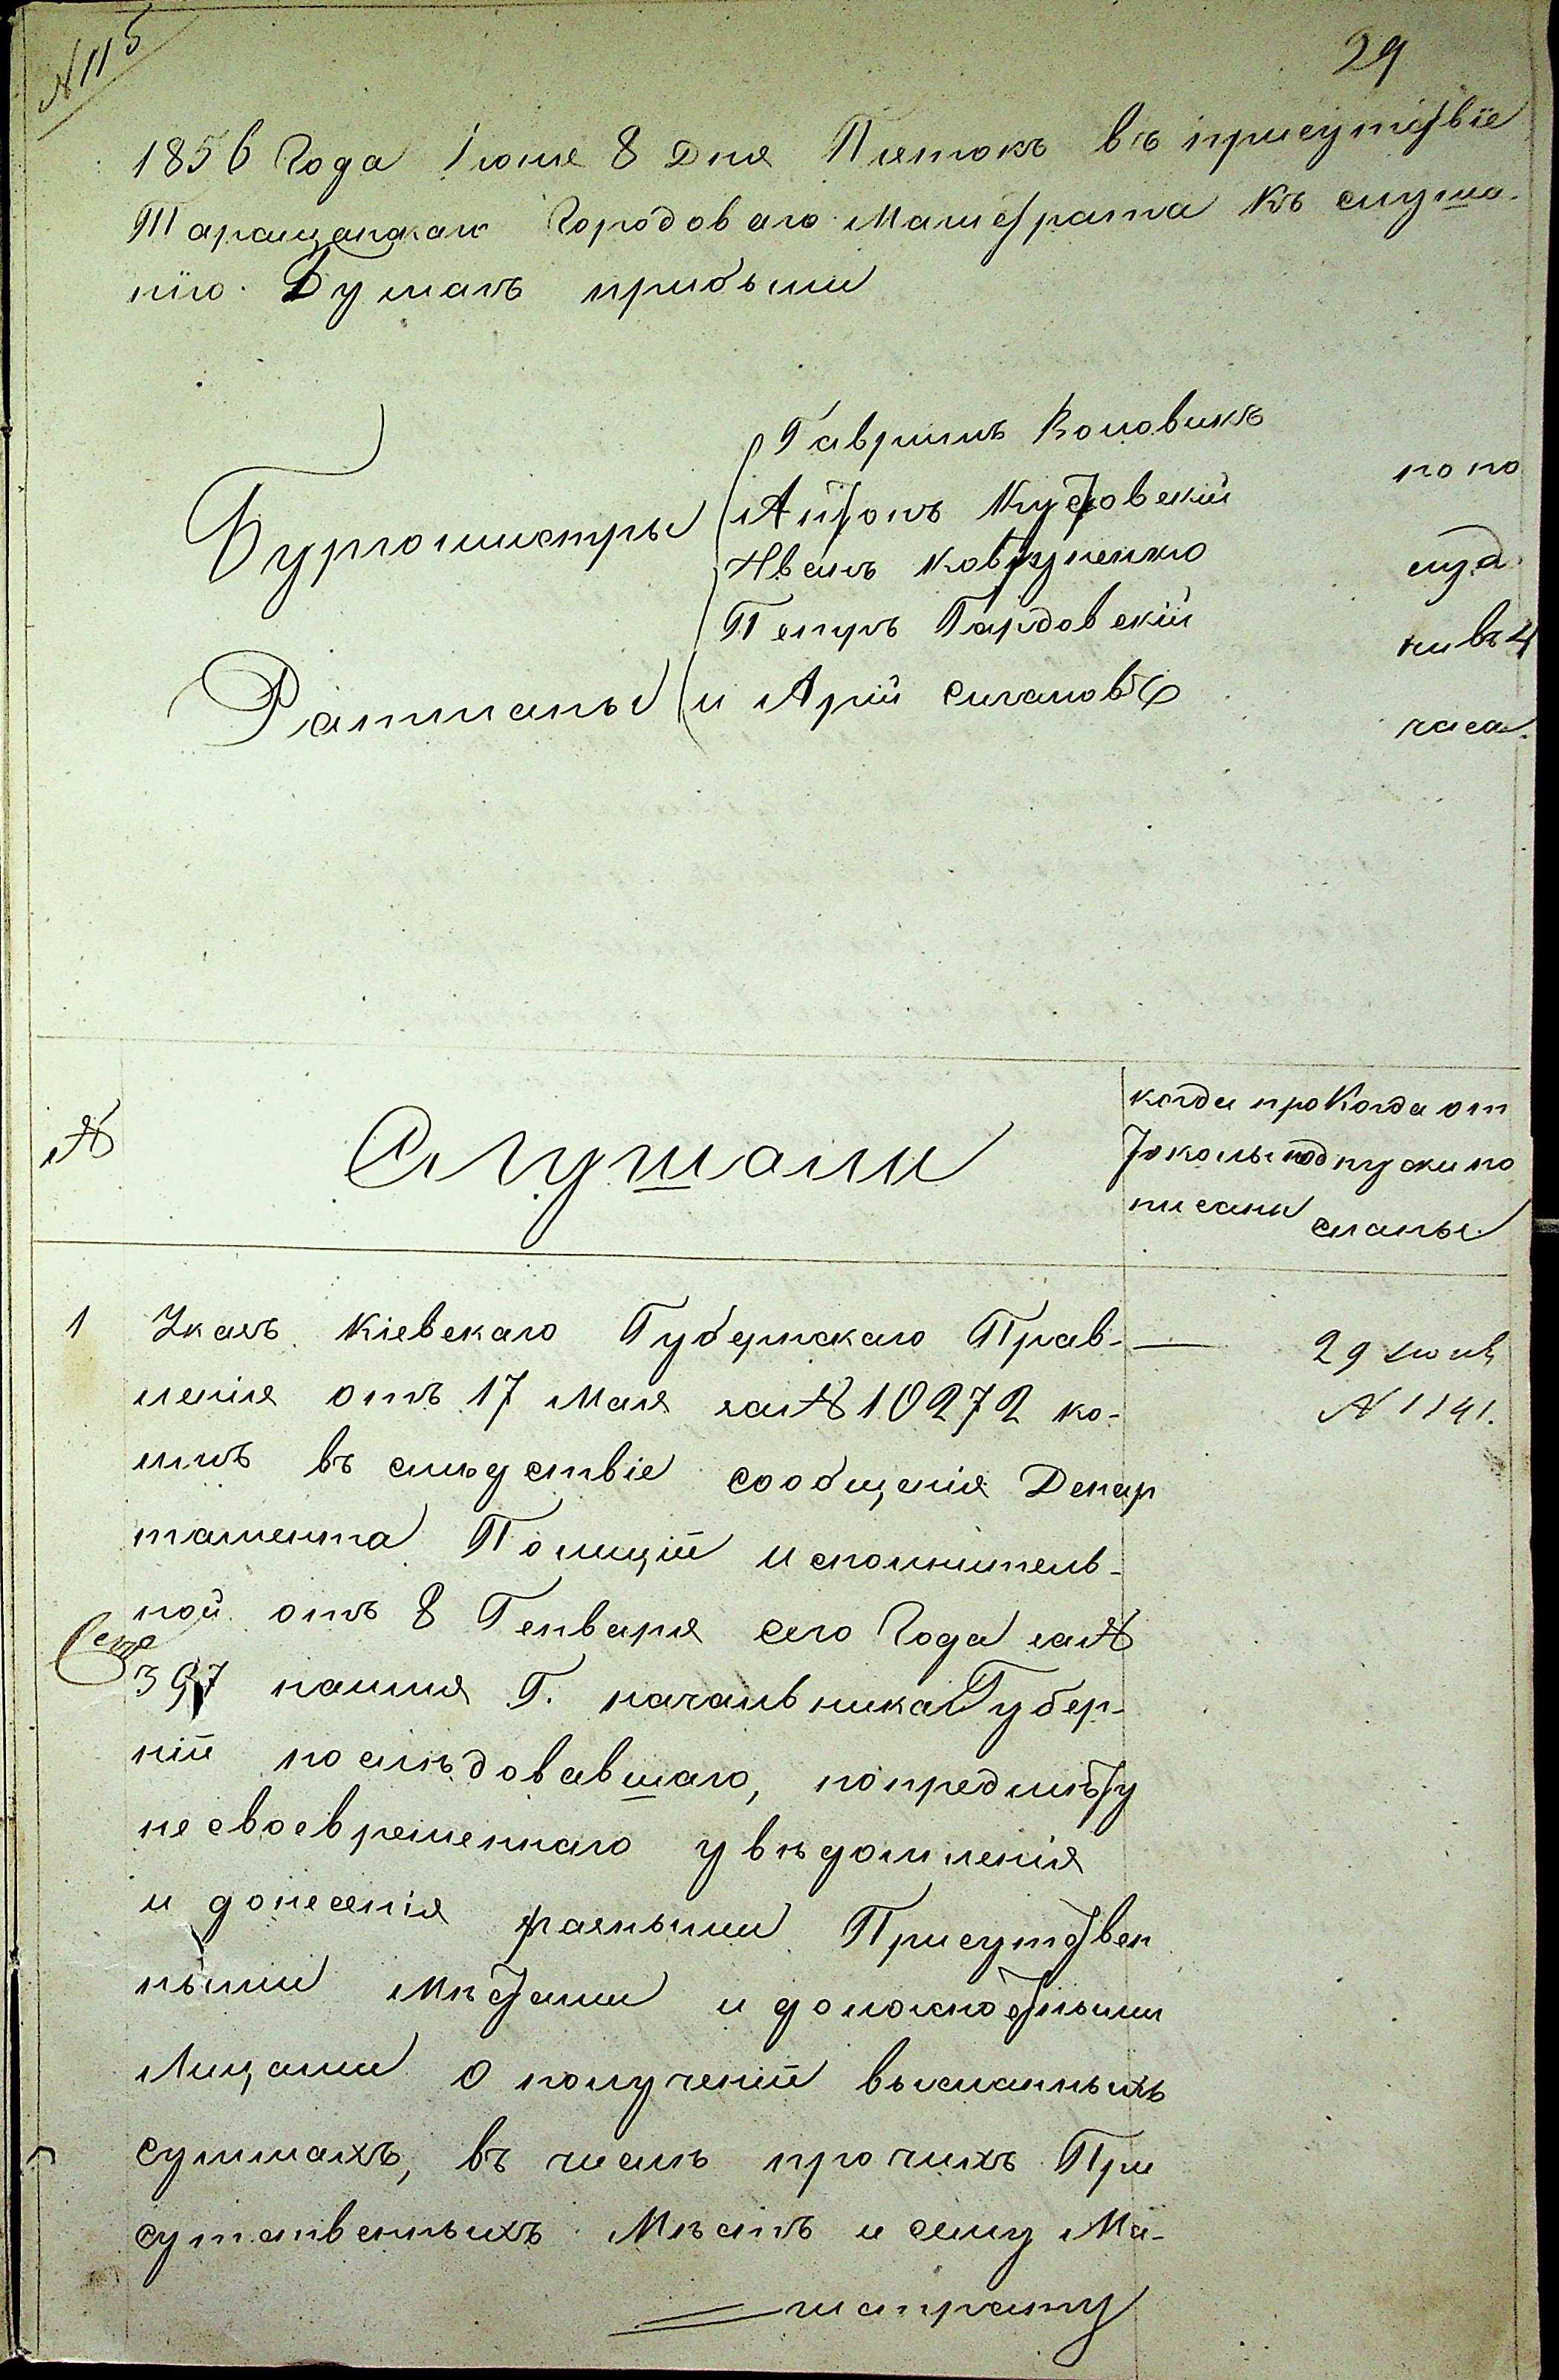 № 115
29
1856 Года Іюня 8 Дня Пятокъ въ присутствіе
Таращанскаго Городоваго Магистрата Къ слуша-
нію Бумагъ прибыли
Бургомистры
Гаврилъ Воловикъ
Антонъ
Иванъ Ковтуненко
Петръ Гардовскій
Ратманы
и Арій
по по
луд
ни въ 4
часа.
№
Слушали
когда про
токолы под
писаны
Когда от
пуски по
сланы
1 Указъ Кіевскаго Губернскаго Прав-
ленія отъ 17 Мая за № 10272 ко-
имъ въ слѣдствіе сообщенія Депар
тамента Полиціи исполнитель-
ной отъ 8 Генваря сего Года за №
397 на имя Г. начальника Губер-
ніи послѣдовавшаго, по предмѣту
не своевременнаго увѣдомленія
и донесенія разными Присутствен
ными Мѣстами и должностными
Лицами о полученіи высланныхъ
суммахъ, въ числѣ прочихъ При
сутственныхъ Мѣстъ и сему Ма-
гистрату
29 Іюня
№ 1141.